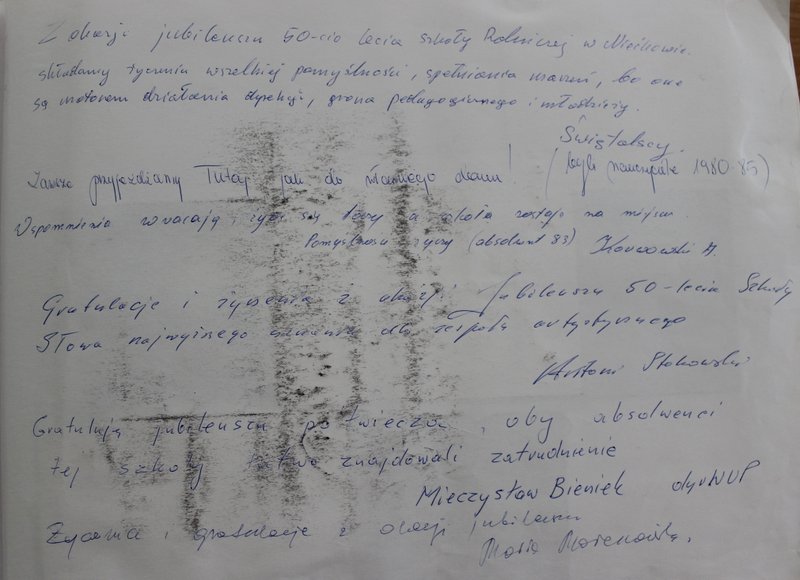 Z okazji jubileuszu 50-cio lecia szkoły Rolniczej w
składamy życzenia wszelkiej pomyślności, spełniania marzeń, bo one
są motorem działania dyrekcji, grona pedagogicznego i młodzieży.
Świętalscy
(byli nauczyciele 1980-85)
Zawsze przyjeżdżamy Tutaj jak do własnego domu!
Wspomnienia wracają, się a szkoła zostaje na miejscu
Pomyślności życzy (absolwent 83) Karwowski A.
Gratulacje i życzenia z okazji Jubileuszu 50-lecia Szkoły
Słowa najwyższego uznania dla zespołu artystycznego
Antoni Stokowski
Gratuluję jubileuszu, oby absolwenci
tej szkoły łatwo znajdowali zatrudnienie
Mieczysław Bieniek dyr WUP
Życzenia i gratulacje z okazji jubileuszu
Maria